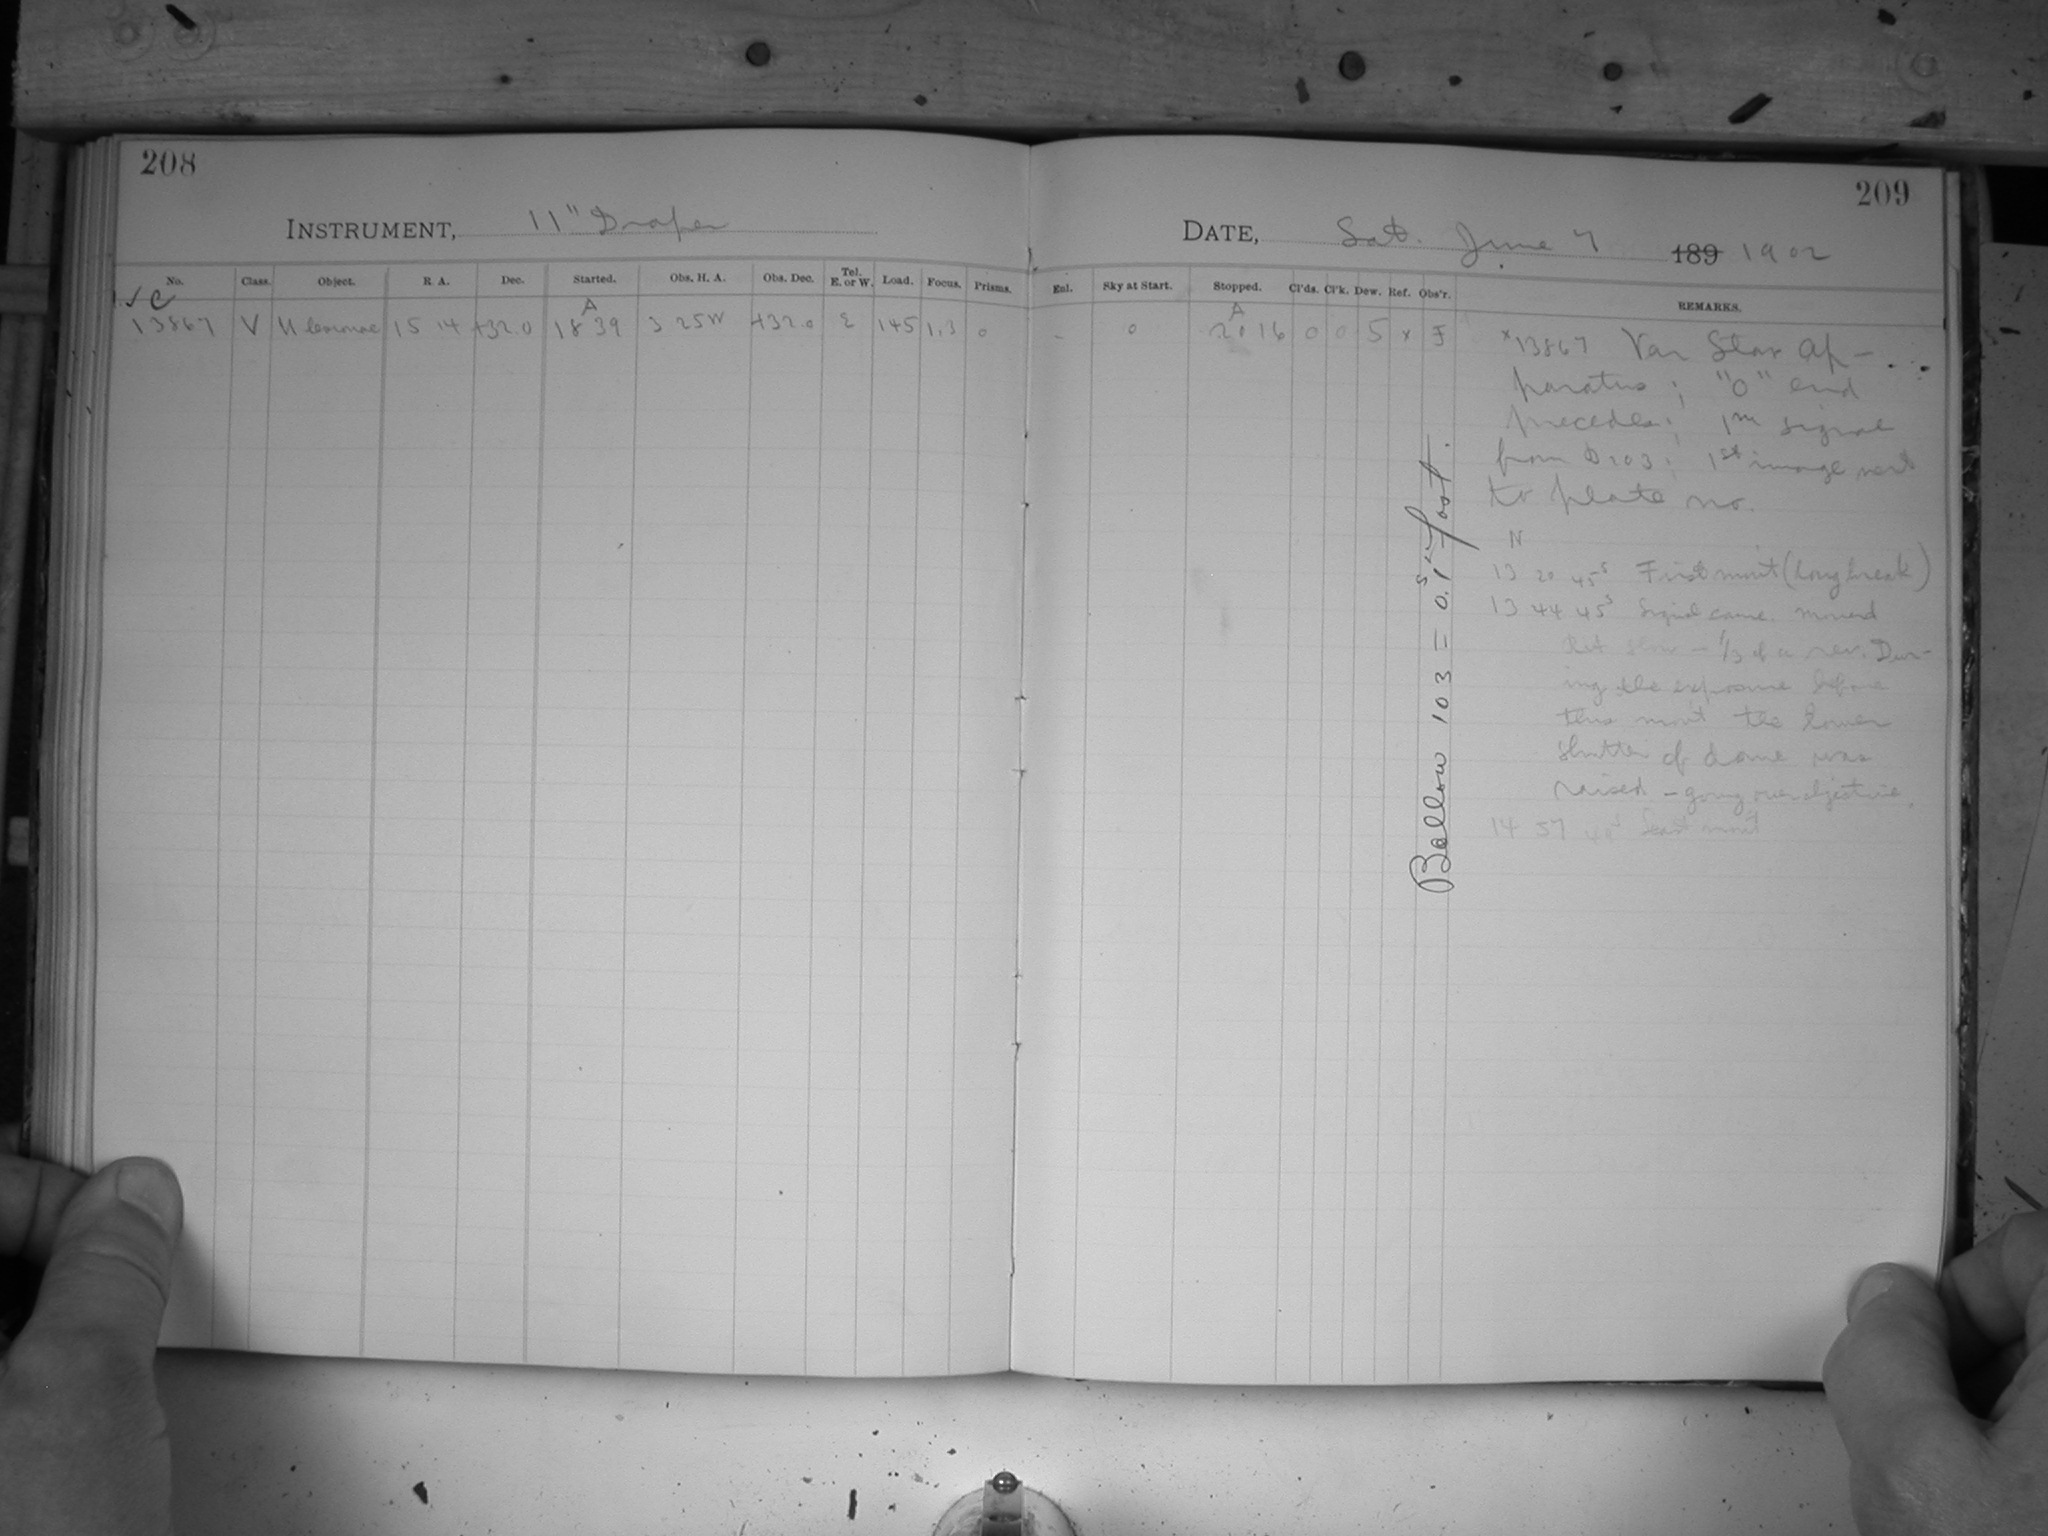 208
INSTRUMENT, 11" Draper
No. Class. Object. R. A. Dec. Started. Obs. H. A. Obs. Dec. Tel. E. or W. Load. Focus. Prisms.
√ C A
13867 V U Coronae 15 14 +32.0 18 39 3 25 W +32.0 E 145 1.3 0
209
DATE, Sat. June 7 189 1902
Enl. Sky at Start. Stopped. Cl'ds. Cl'k. Dew. Ref. Obs'r. REMARKS.
A
- 0 20 16 0 0 5 x F
x13867 Var Star Ap-
paratus; "0" end
precedes; 1 signal
from 203; 1st image next
to plate no.
N
13 20 45s First mvt (long break)
13 44 45s Signal came. Moved
- 1/3 of a rev. Dur-
ing the exposure before
this mvt the lower
shutter of dome was
raised - going over objective.
14 57 Last mvt
Ballou 103 = 0.1s fast.